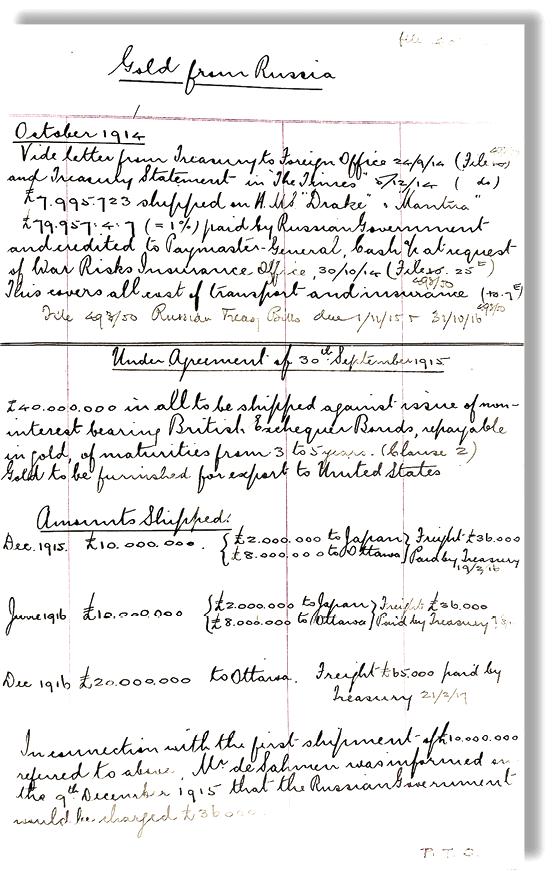 file
Gold from Russia
October 1914
Vide letter from Treasury to Foreign Office 24/9/14 (File
and Treasury Statement in "The Times" 5/12/14 ( do)
£7.995.723 shipped on H.M.S "Drake" & "Mantua"
£79.957.4.7 (= 1%) paid by Russian Government
and credited to Paymaster-General, Cash a/c at request
of War Risks Insurance Office, 30/10/14 (File no. 25E)
493/50
This covers all cost of transport and insurance (no. 7E)
493/50
File 493/50 Russian Treasy Bills due 1/11/15 & 31/10/16
Under Agreement of 30th September 1915
£40.000.000 in all to be shipped against issue of non-
interest bearing British Exchequer Bonds, repayable
in gold, of maturities from 3 to 5 years. (Clause 2)
Gold to be furnished for export to United States
Amounts Shipped:
Dec. 1915. £10.000.000. { £2.000.000 to Japan } Freight £36.000
{ £8.000.000 to Ottawa } Paid by Treasury
19/2/16
June 1916 £10.000.000 { £2.000.000 to Japan } Freight £36.000
{ £8.000.000 to Ottawa } Paid by Treasury
Dec 1916 £20.000.000 to Ottawa. Freight £65,000 paid by
Treasury 21/2/17
In connection with the first shipment of £10.000.000
referred to above, Mr de Sahmen was informed on
the 9th December 1915 that the Russian Government
would be charged £36000
P.T.O.